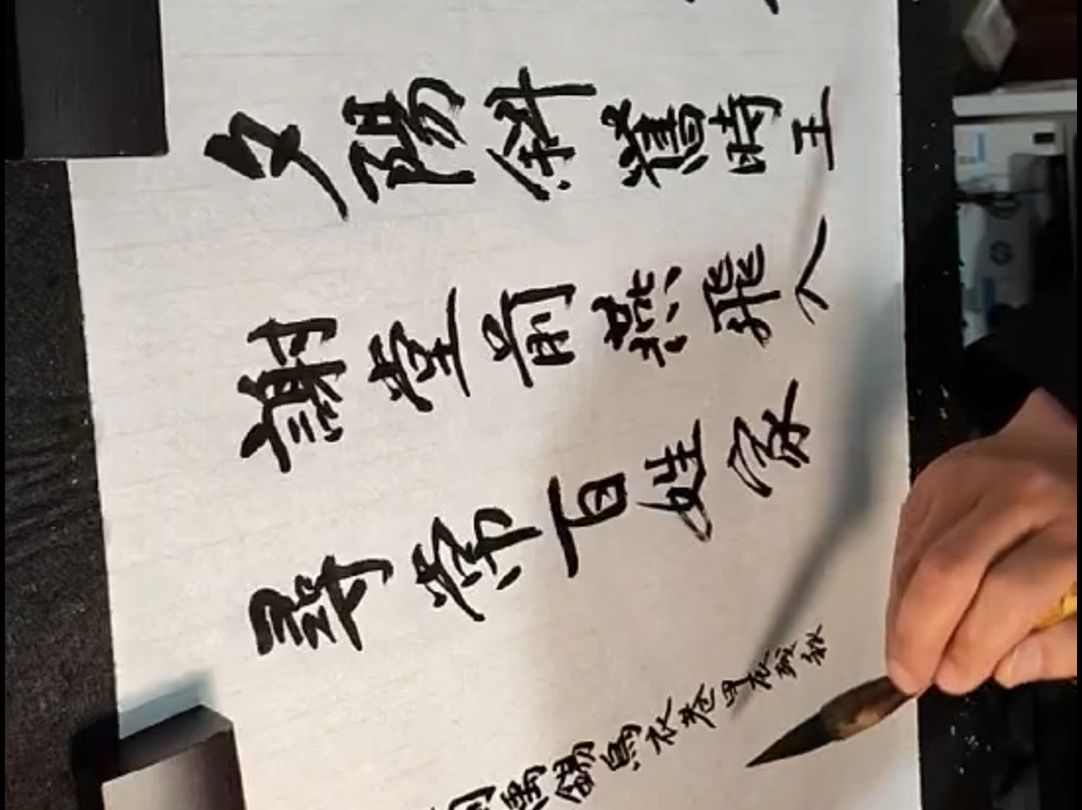 夕陽斜舊時王
謝堂前燕飛入
尋常百姓家
劉禹錫烏衣巷甲辰秋